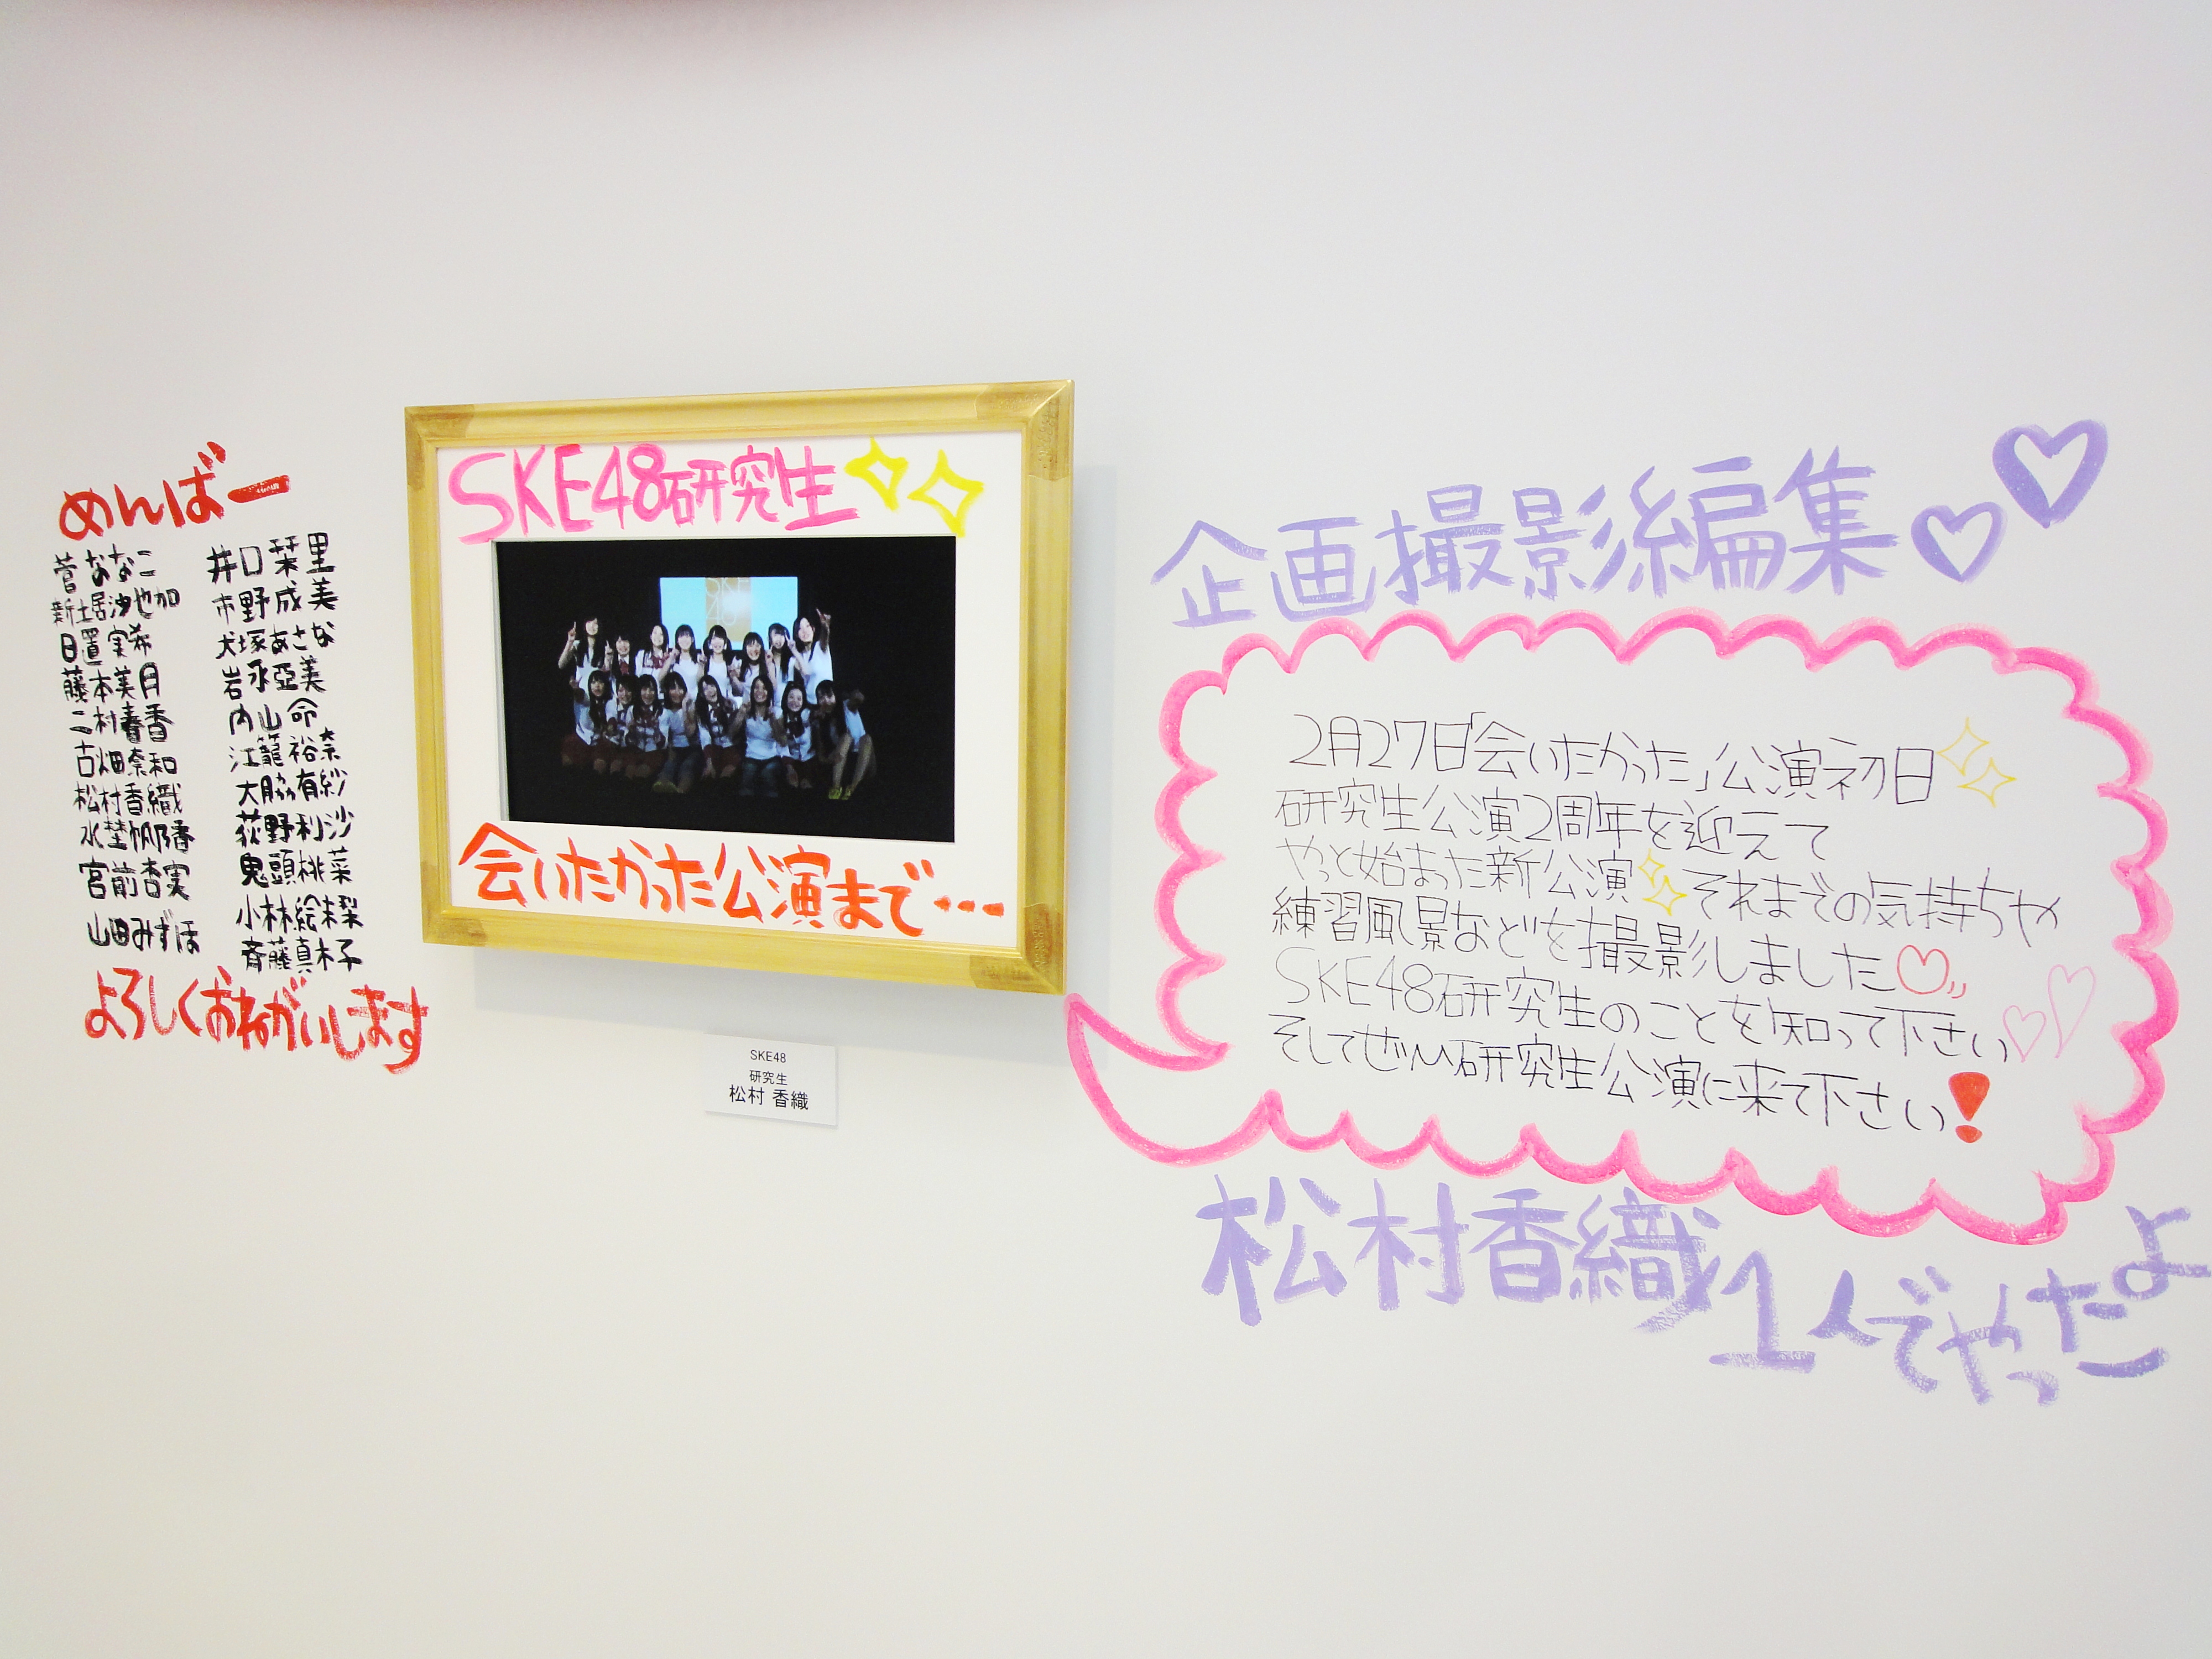 めんばー
菅ななこ
新土居沙也加
日置実希
藤本美月
二村春香
古畑奈和
松村香織
水埜帆乃香
宮前杏実
山田みずほ
井口栞里
市野成美
犬塚あさな
岩永亞美
内山命
江籠裕奈
大脇有紗
荻野利沙
鬼頭桃菜
小林絵未梨
斉藤真木子
よろしくおねがいします
SKE48研究生
会いたかった公演まで…
SKE48
研究生
松村 香織
企画撮影編集
2月27日「会いたかった」公演初日
研究生公演2周年を迎えて
やっと始まった新公演それまでの気持ちや
練習風景などを撮影しました
SKE48研究生のことを知って下さい
そしてぜひ研究生公演に来て下さい!
松村香織1人でやったよ